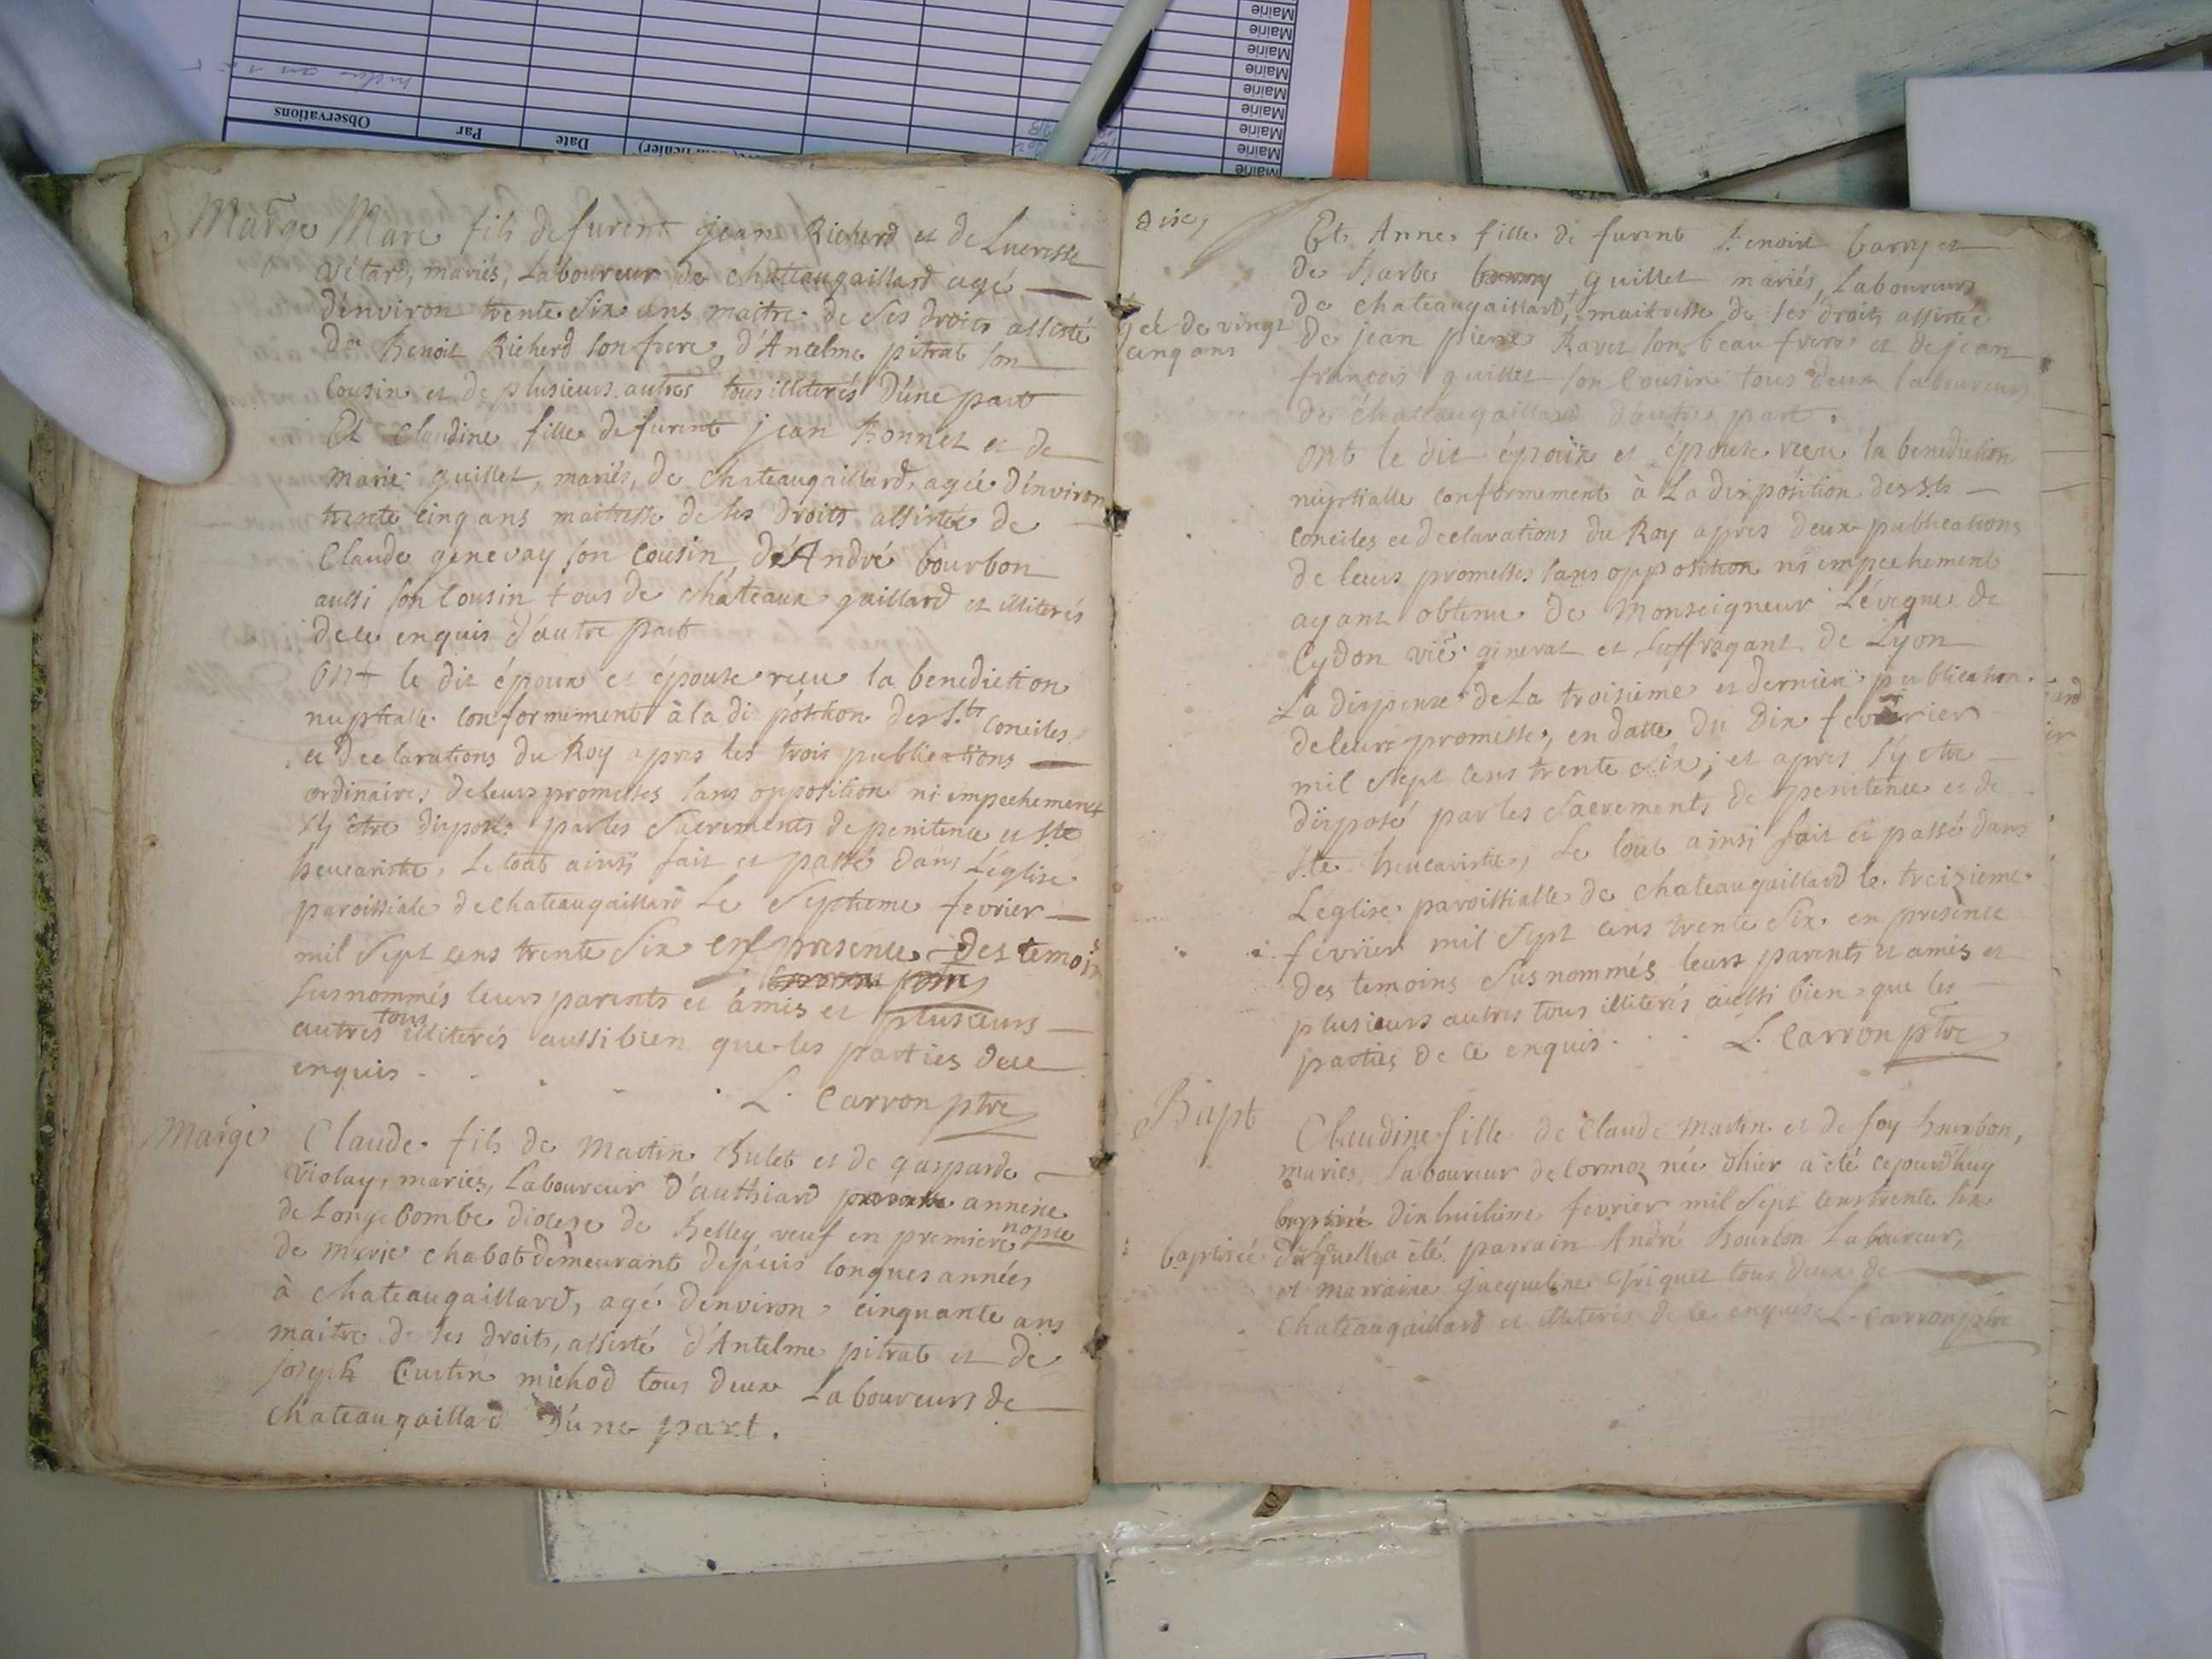 Mairie
Mairie
Mairie
Mairie
Mairie
Mairie
Mairie
Mairie
Mairie
Observations
Par
Date
Marge Marc fils de furent jean Richerd et de Lucresse
Vétard, mariés, Laboureur de chateaugaillard agé
d'environ trente six ans maitre de ses droits assisté
de Benoit Richerd son frere, d'Antelme pitrat son
cousin et de plusieurs autres tous illiterés d'une part
Et Claudine fille de furent jean Bonnet et de
marie guillet, mariés, de chateaugaillard, agée d'environ
trente cinq ans maitresse de ses droits assistée de
Claude genevay son cousin, d'André bourbon
aussi son cousin tous de chateaux gaillard et illiterés
de ce enquis d'autre part
Ont le dit époux et épouse receu la benediction
nuptialle conformement à la disposition des Sts Conciles
et declarations du Roy apres les trois publications
ordinaires de leurs promesses sans opposition ni empechement
s'y etre disposés par les Sacrements de penitence et ste
heucaristie, Le tout ainsi fait et passé dans L'église
paroissiale de chateaugaillard Le Septieme fevrier
mil Sept cens trente Six en presence Des temoin
susnommés leurs parents et amis et plusieurs
autres tous illiterés aussi bien que les parties de ce
enquis
L. Carron ptre
Marge Claude fils de Martin Bulet et de gasparde
violay, mariés, Laboureur d'authiard annexe
de Longecombe dioceze de Belley veuf en premiere nopce
de Marie chabot demeurant depuis longues années
à chateaugaillard, agé d'environ cinquante ans
maitre de ses droits, assisté d'Antelme pitrat et de
joseph Custin michod tous deux Laboureurs de
chateaugaillard d'une part.
Et Anne fille de furent Benoist barry et
de Barbe guillet mariés, Laboureurs
de chateaugaillard, maitresse de ses droits assistée
agée de vingt
cinq ans
de jean pierre Ravet son beau frere et de jean
françois guillet son cousin tous deux laboureurs
de chateaugaillard d'autre part.
Ont le dit époux et épouse receu la benediction
nuptialle conformement à La disposition des Sts
conciles et declarations du Roy apres deux publications
de leurs promesses sans opposition ni empechement
ayant obtenu de Monseigneur L'éveque de
Cydon vic general et suffragant de Lyon
La dispense de La troisieme et derniere publication
de leurs promesse, en datte du Dix fevrier
mil Sept cens trente Six; et apres s'y etre
disposé par les Sacrements de penitence et de
Ste heucaristie, Le tout ainsi fait et passé dans
L'église paroissialle de chateaugaillard le treizieme
fevrier mil Sept cens trente Six en presence
des temoins Sus nommés leurs parents et amis et
plusieurs autres tous illiterés aussi bien que les
parties de ce enquis. L. Carron ptre
Bapt Claudine fille de Claude Martin et de foy bourbon,
mariés, Laboureur de cormoz née d'hier a été cejourd'huy
baptisée dixhuitieme fevrier mil Sept cens trente six
baptisée de Laquelle a été parrain André Bourbon Laboureur,
et marraine jacqueline tous deux de
chateaugaillard et illiterés de ce enquis L. Carron ptre